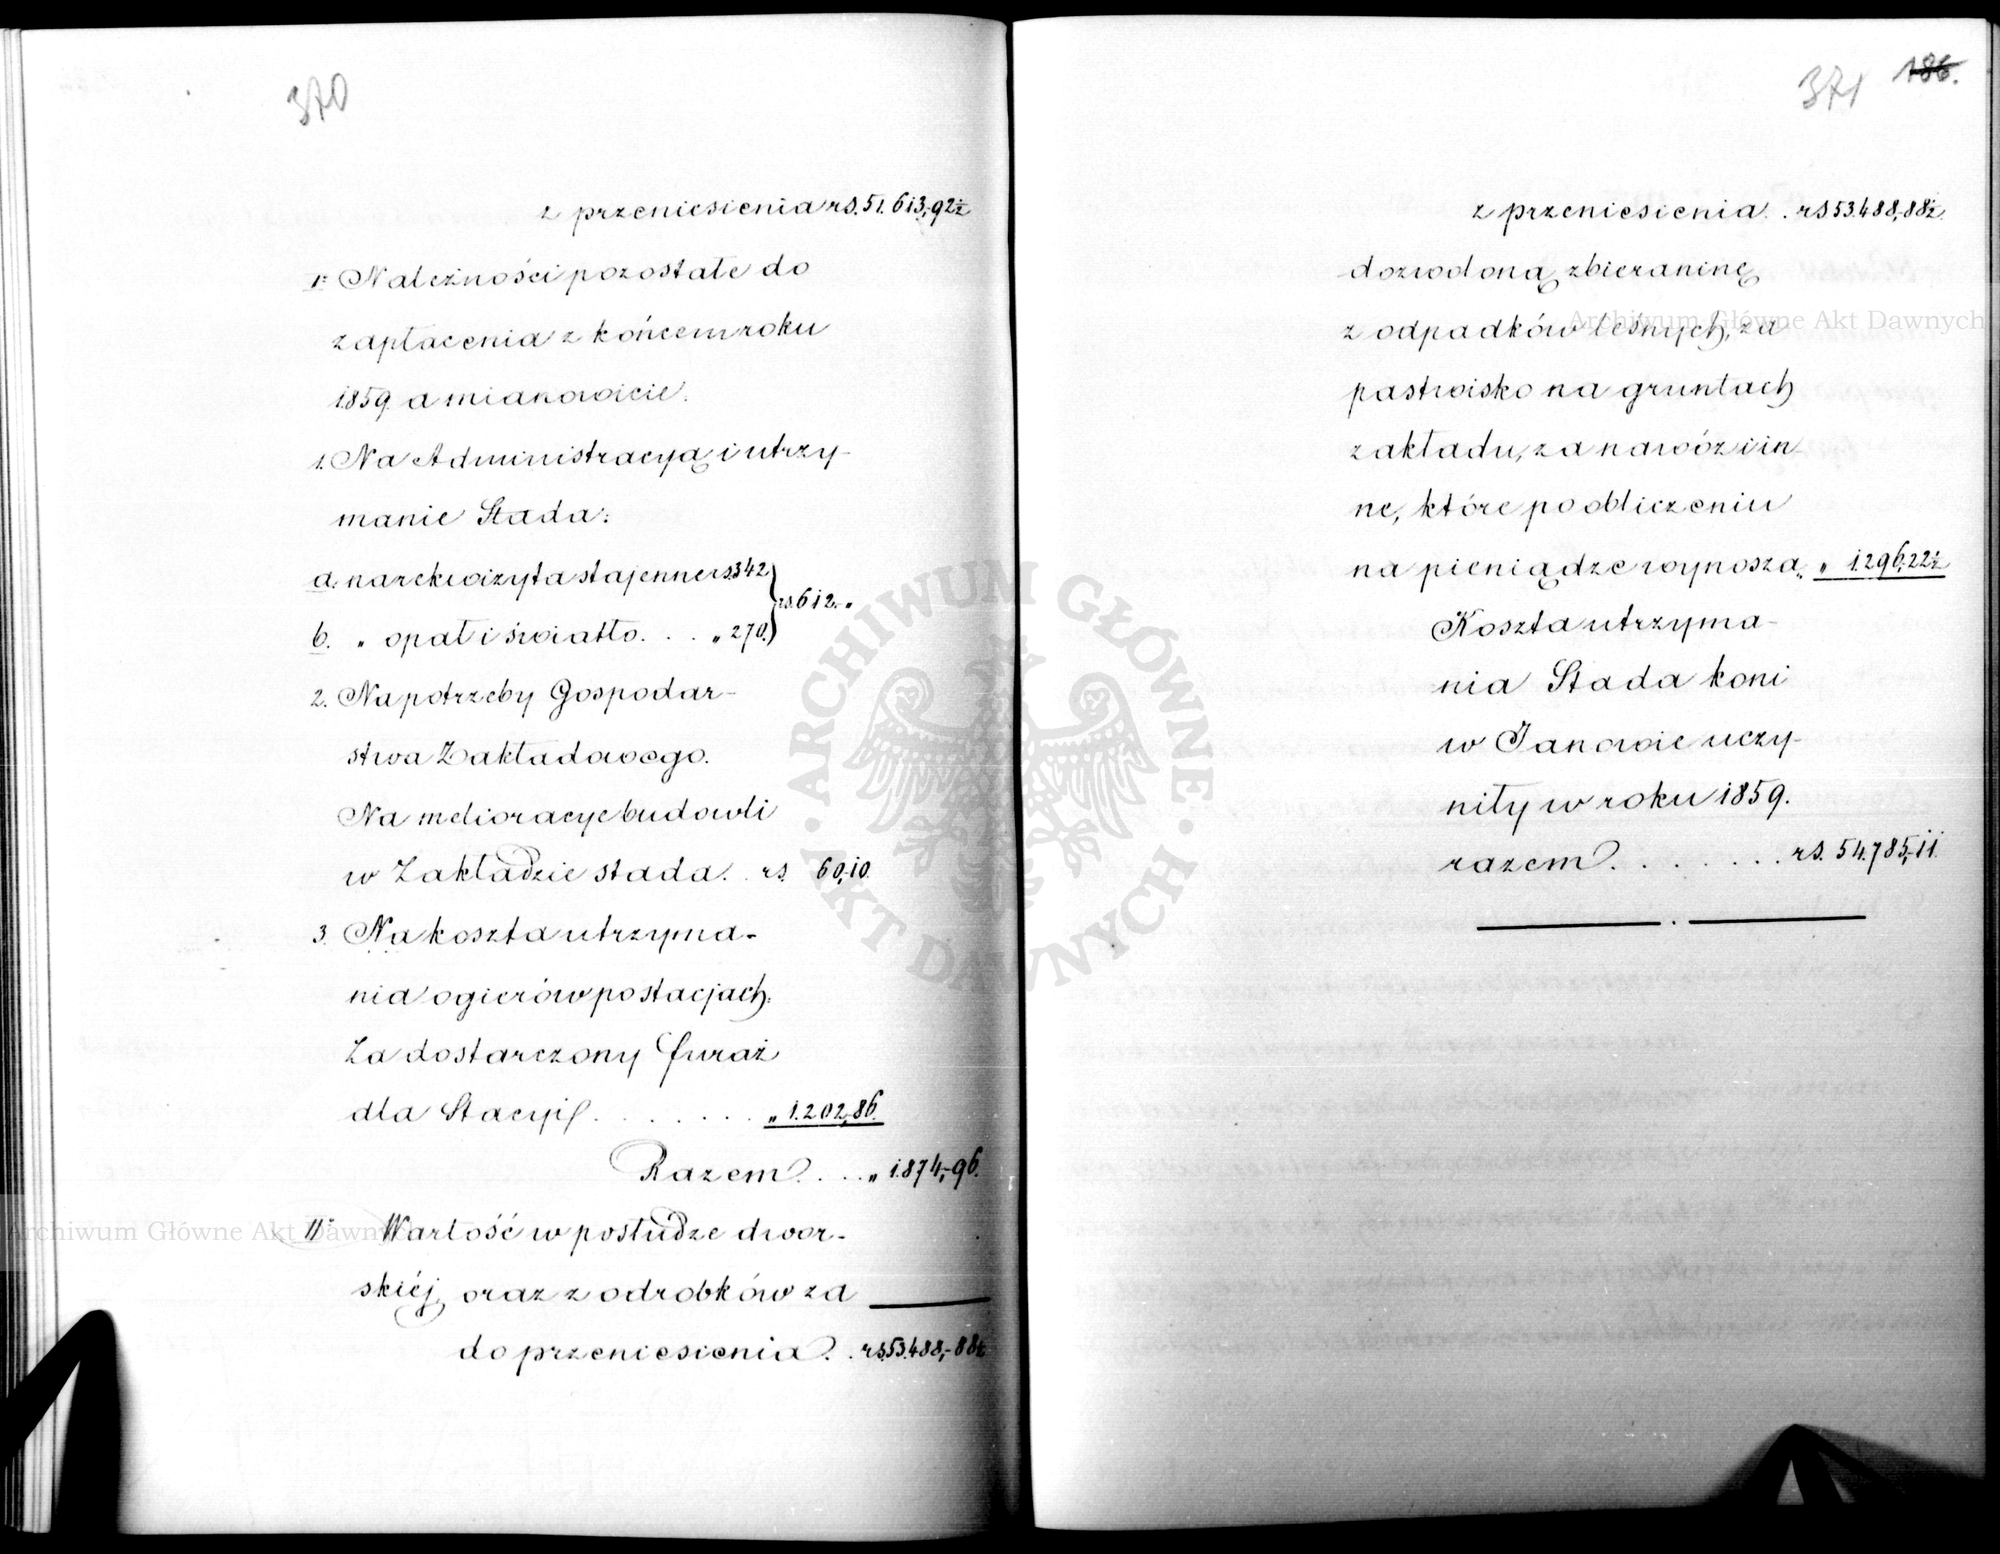 370
z przeniesienia rs. 51.613,92½
I: Należności pozostałe do
zapłacenia z końcem roku
1859. a mianowicie.
1. Na Administracyą i utrzy-
manie Stada:
a. na rekwizyta stajenne rs. 342.
rs. 612.-„
b. „ opał i światło. . . „ 270.
2. Na potrzeby Gospodar-
stwa Zakładowego.
Na melioracye budowli
w Zakładzie stada. . rs. 60,10.
3. Na koszta utrzyma-
nia ogierów po stacjach:
Za dostarczony furaż
dla Stacyi . . . . . . . „ 1.202,86.
Razem . . . „ 1.874,-96.
II: Wartość w posłudze dwor-
skiéj, oraz z odrobków za
do przeniesienia . . rs. 53.488,-88½
371 186.
z przeniesienia . . rs 53.488,-88½.
dozwoloną zbieraninę
z odpadków leśnych, za
pastwisko na gruntach
zakładu, za nawóz i in-
ne, które po obliczeniu
na pieniądze wynoszą „ 1.296,22½
Koszta utrzyma-
nia Stada koni
w Janowie uczy-
niły w roku 1859.
razem . . . . . . . rs. 54.785,-11.
ARCHIWUM GŁÓWNE
AKT DAWNYCH
Archiwum Główne Akt Dawnych
Archiwum Główne Akt Dawnych